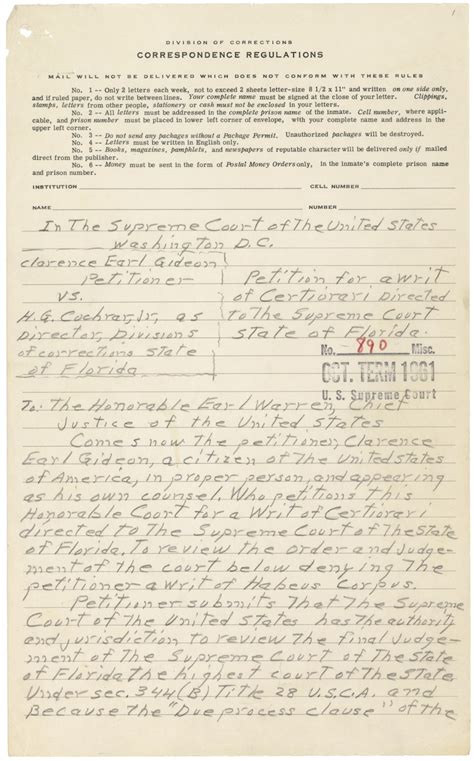 1
DIVISION OF CORRECTIONS
CORRESPONDENCE REGULATIONS
MAIL WILL NOT BE DELIVERED WHICH DOES NOT CONFORM WITH THESE RULES
No. 1 -- Only 2 letters each week, not to exceed 2 sheets letter-size 8 1/2 x 11" and written on one side only,
and if ruled paper, do not write between lines. Your complete name must be signed at the close of your letter. Clippings,
stamps, letters from other people, stationery or cash must not be enclosed in your letters.
No. 2 -- All letters must be addressed in the complete prison name of the inmate. Cell number, where applic-
able, and prison number must be placed in lower left corner of envelope, with your complete name and address in the
upper left corner.
No. 3 -- Do not send any packages without a Package Permit. Unauthorized packages will be destroyed.
No. 4 -- Letters must be written in English only.
No. 5 -- Books, magazines, pamphlets, and newspapers of reputable character will be delivered only if mailed
direct from the publisher.
No. 6 -- Money must be sent in the form of Postal Money Orders only, in the inmate's complete prison name
and prison number.
INSTITUTION CELL NUMBER
NAME NUMBER
In The Supreme Court of The United States
Washington D.C.
Clarence Earl Gideon
Petitioner Petition for a Writ
vs. of Certiorari Directed
H.G. Cochran, Jr, as to The Supreme Court
Director, Divisions State of Florida.
of corrections State No. 890 Misc.
of Florida OCT. TERM 1961
U. S. Supreme Court
To: The Honorable Earl Warren, Chief
Justice of the United States
Comes now The petitioner, Clarence
Earl Gideon, a citizen of The United states
of America, in proper person, and appearing
as his own counsel. Who petitions this
Honorable Court for a Writ of Certiorari
directed to The Supreme Court of The State
of Florida. To review the order and Judge-
ment of the court below denying The
petitioner a writ of Habeus Corpus.
Petitioner submits That The Supreme
Court of The United States has The authority
and jurisdiction to review the final Judge-
ment of The Supreme Court of The State
of Florida the highest court of The State
Under sec. 344(B) Title 28 U.S.C.A. and
Because the "Due process clause" of the